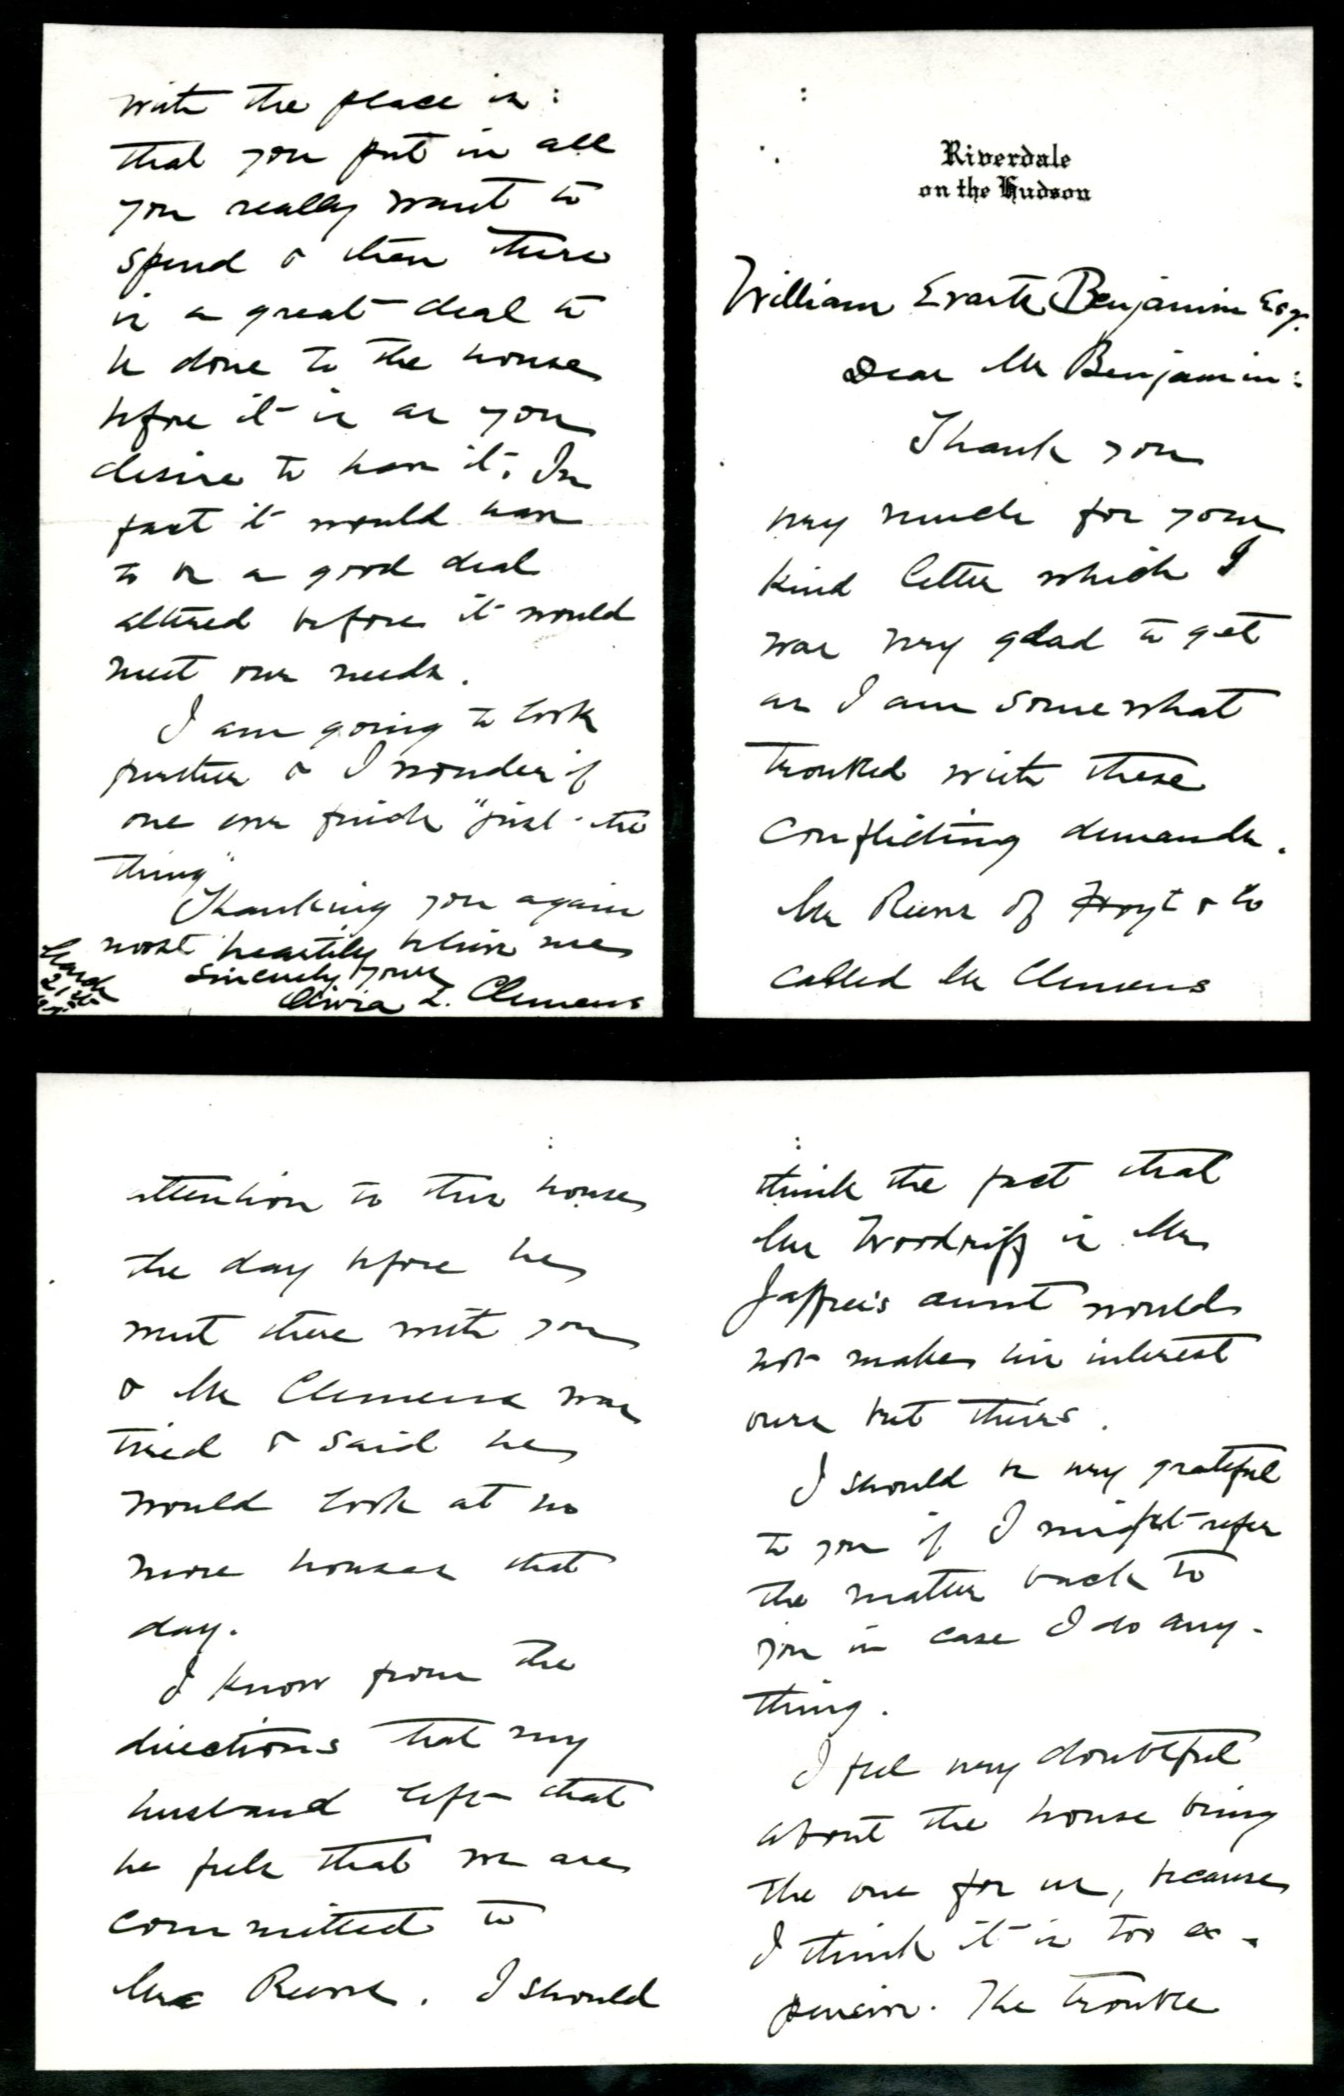 Riverdale
on the Hudson
William Evarts Benjamin Esq.
Dear Mr Benjamin:
Thank you
very much for your
kind letter which I
was very glad to get
as I am somewhat
troubled with these
conflicting demands.
Mr Reeve of Hoyt & Co
called Mr Clemens
attention to this house
the day before he
met there with you
& Mr Clemens was
tired & said he
would look at no
more houses that
day.
I know from the
directions that my
husband left that
he feels that we are
committed to
Mr Reeve. I should
think the fact that
Mr Woodruff is Mr
Jaffrei's aunt would
not make his interest
ours but theirs.
I should be very grateful
to you if I might refer
the matter back to
you in case I do any-
thing.
I feel very doubtful
about the house being
the one for us, because
I think it is too ex-
pensive. The trouble
with the place is:
that you put in all
you really want to
spend & then there
is a great deal to
be done to the house
before it is as you
desire to have it. In
fact it would have
to be a good deal
altered before it would
meet our needs.
I am going to look
further & I wonder if
one ever finds "just the
thing"
Thanking you again
most heartily believe me
Sincerely yours
Olivia L. Clemens
March
21st